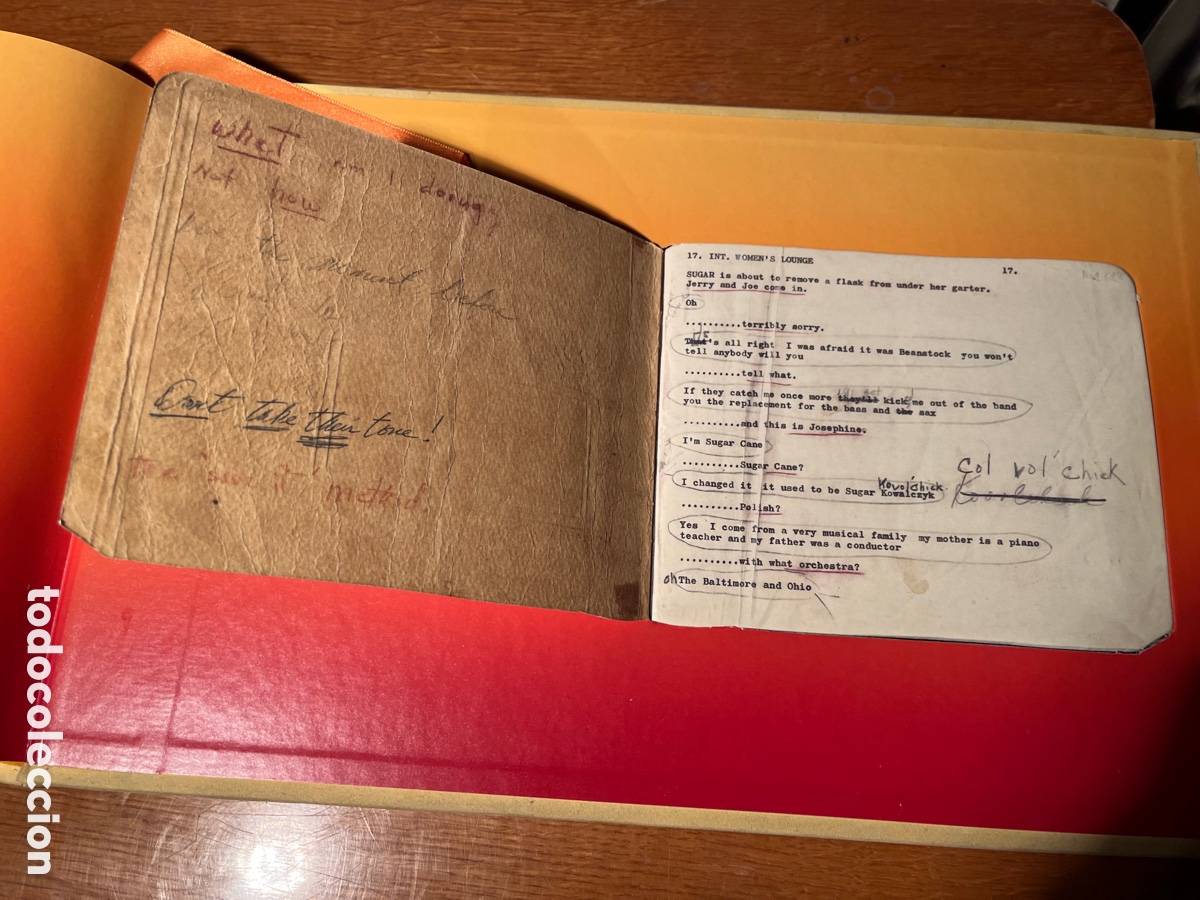 What am I doing,
Not how
the moment before
Don't take their tone!
method
17. INT. WOMEN'S LOUNGE 17.
SUGAR is about to remove a flask from under her garter.
Jerry and Joe come in.
Oh
..........terribly sorry.
It's
That's all right I was afraid it was Beanstock you won't
tell anybody will you
..........tell what.
If they catch me once more they'll kick me out of the band
you the replacement for the bass and the sax
..........and this is Josephine.
I'm Sugar Cane
..........Sugar Cane?
col vol' chick
Kovol'chick
I changed it it used to be Sugar Kowalczyk
..........Polish?
Yes I come from a very musical family my mother is a piano
teacher and my father was a conductor
..........with what orchestra?
oh The Baltimore and Ohio
todocoleccion